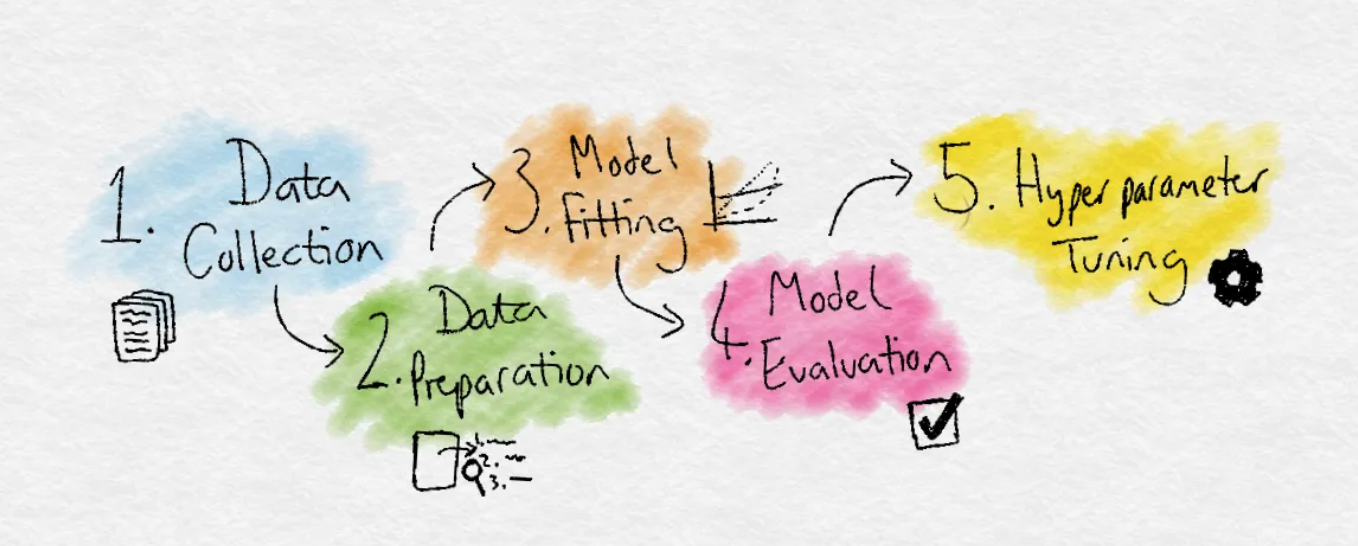 1. Data
Collection
2. Data
Preparation
1.
2.
3.
3. Model
Fitting
4. Model
Evaluation
5. Hyper parameter
Tuning